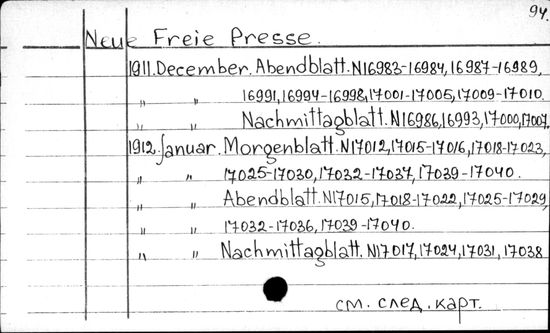 94.
Neue Freie Presse.
1911. December. Abendblatt. N16983-16984, 16987-16989,
" " 16991, 16994-16998, 17001-17005, 17009-17010.
" " Nachmittagblatt. N16986, 16993, 17000, 17007.
1912. Januar. Morgenblatt. N17012, 17015-17016, 17018-17023,
" " 17025-17030, 17032-17037, 17039-17040.
" " Abendblatt. N17015, 17018-17022, 17025-17029,
" " 17032-17036, 17039-17040.
" " Nachmittagblatt. N17017, 17024, 17031, 17038
см. след. карт.